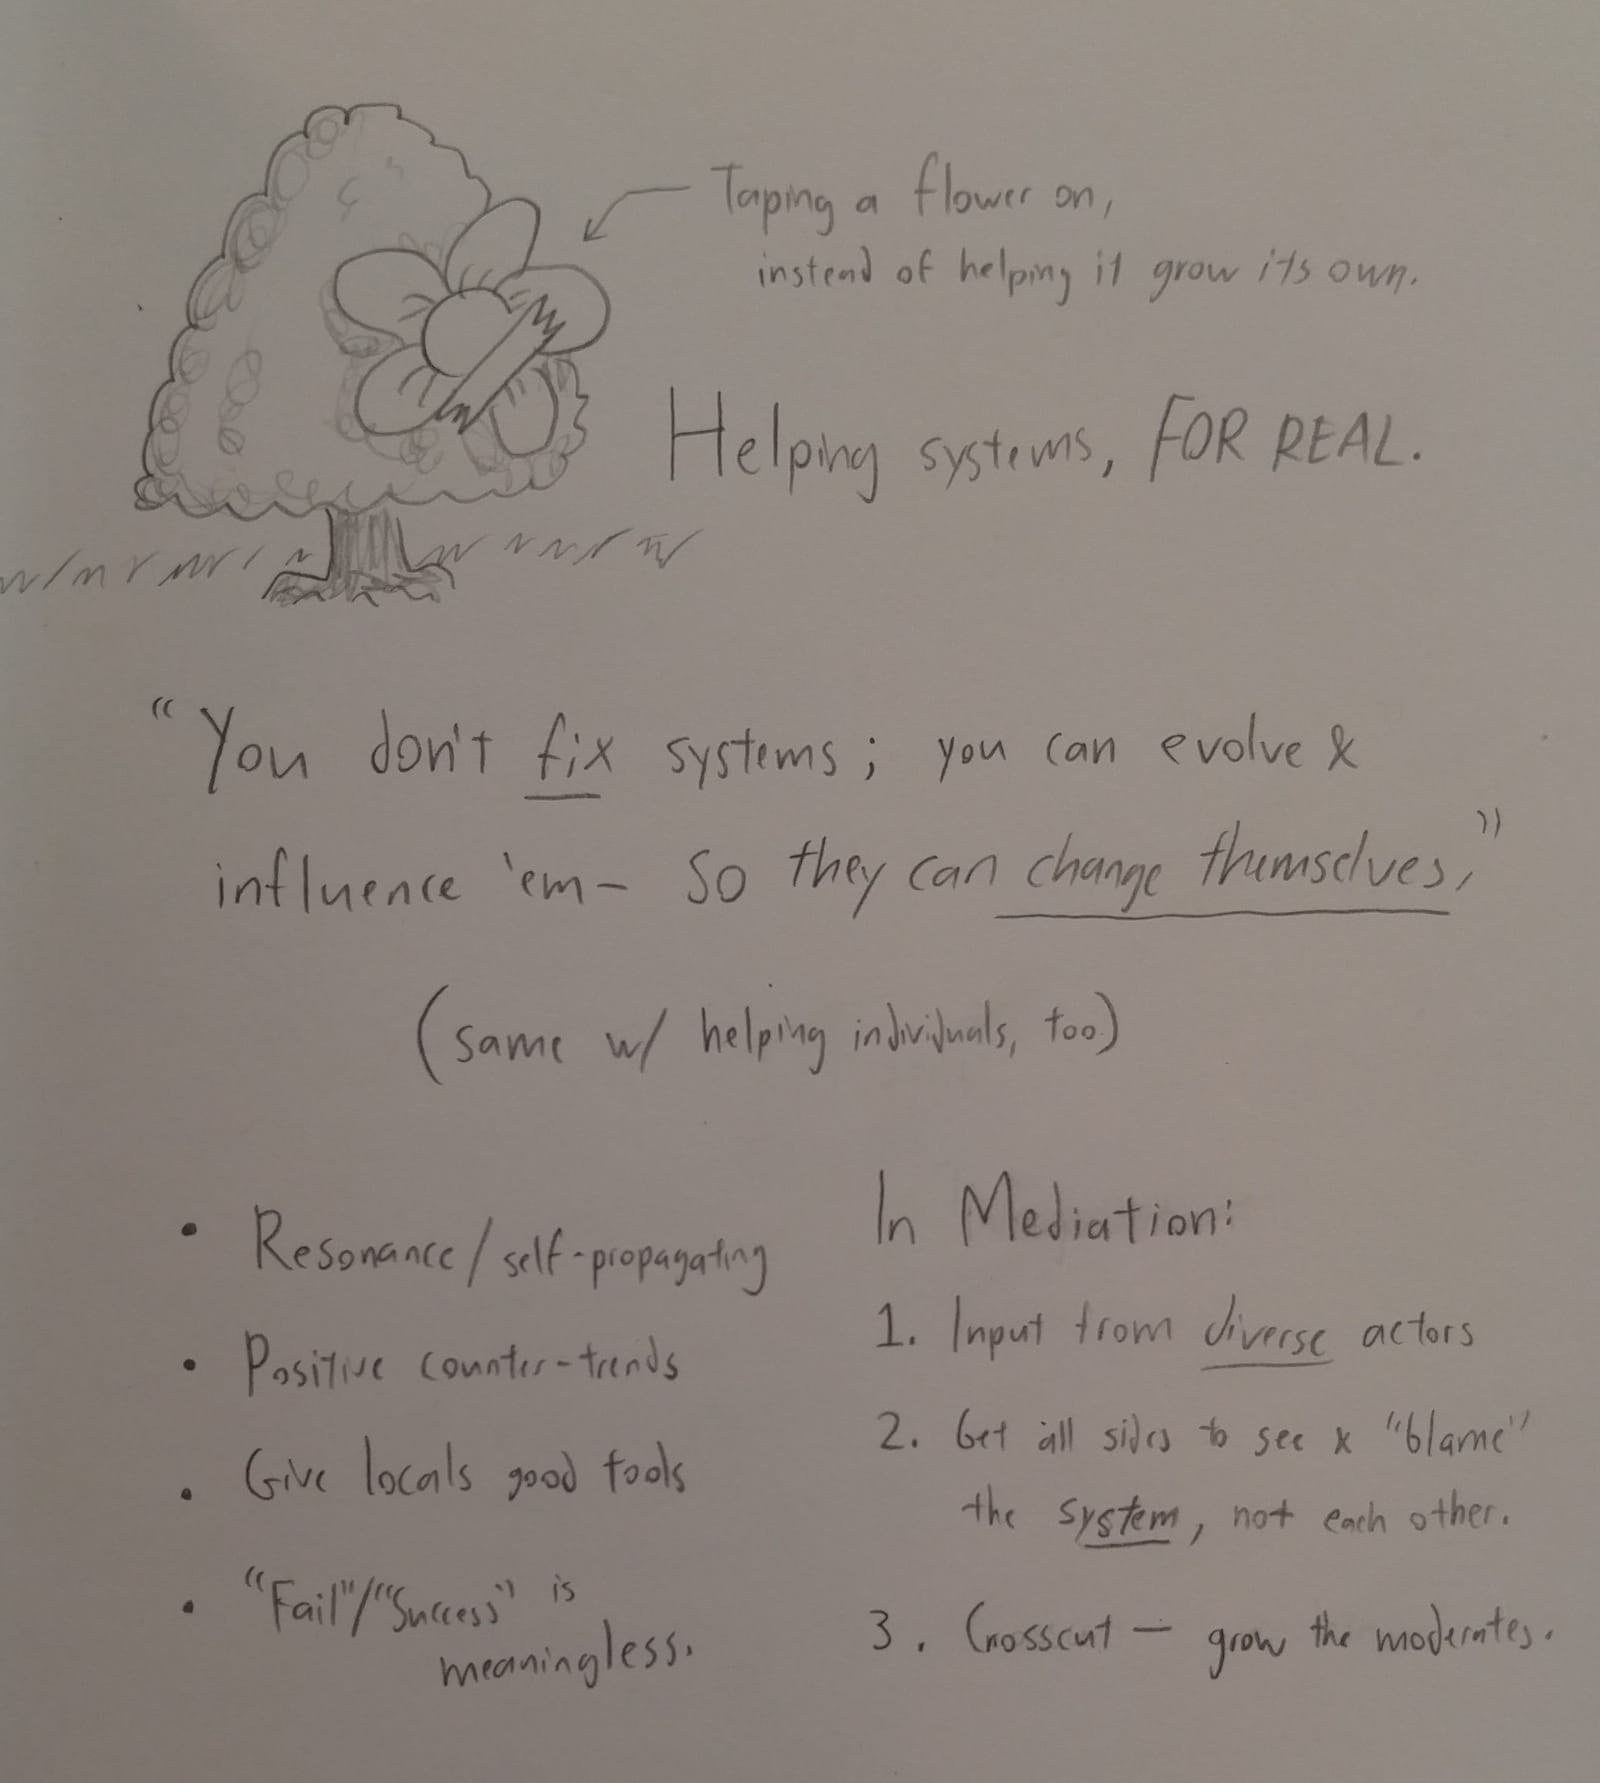 Taping a flower on,
instead of helping it grow its own.
Helping systems, FOR REAL.
"You don't fix systems; you can evolve &
influence 'em- So they can change themselves,"
(same w/ helping individuals, too.)
• Resonance/self-propagating
• Positive counter-trends
• Give locals good tools
• "Fail"/"Success" is
meaningless.
In Mediation:
1. Input from diverse actors
2. Get all sides to see & "blame"
the system, not each other.
3. Crosscut — grow the moderates.